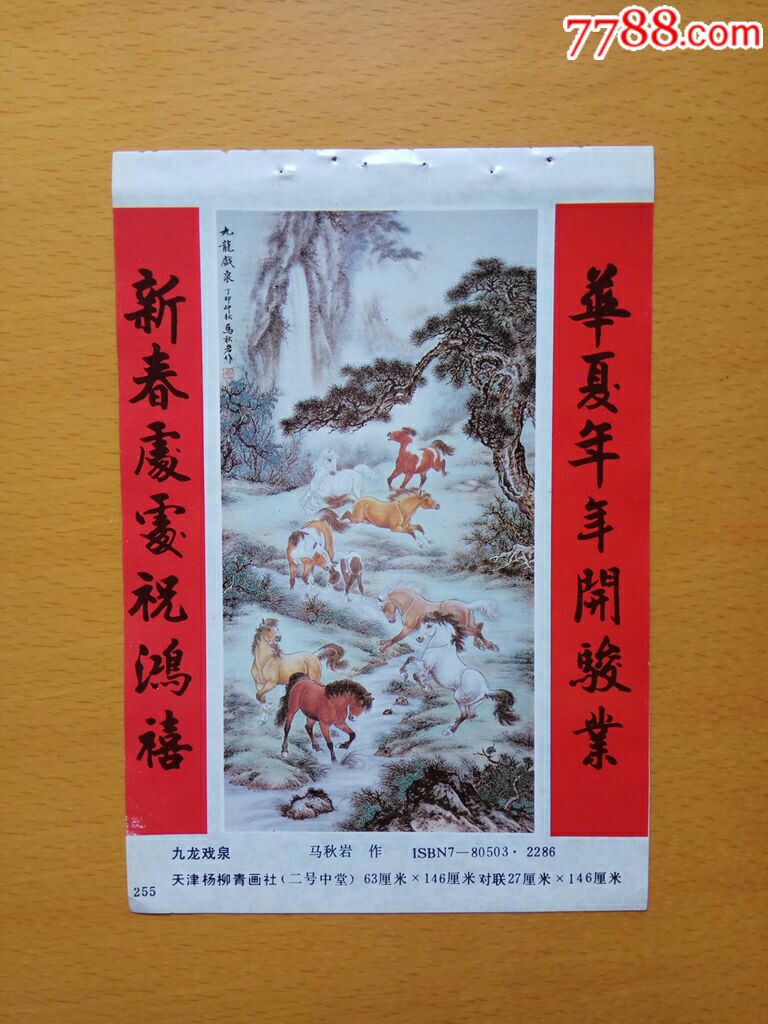 7788.com
華夏年年開駿業
九龍戲泉 丁卯仲秋馬秋岩作
新春處處祝鴻禧
九龙戏泉 马秋岩 作 ISBN7—80503·2286
天津杨柳青画社（二号中堂）63厘米×146厘米对联27厘米×146厘米
255